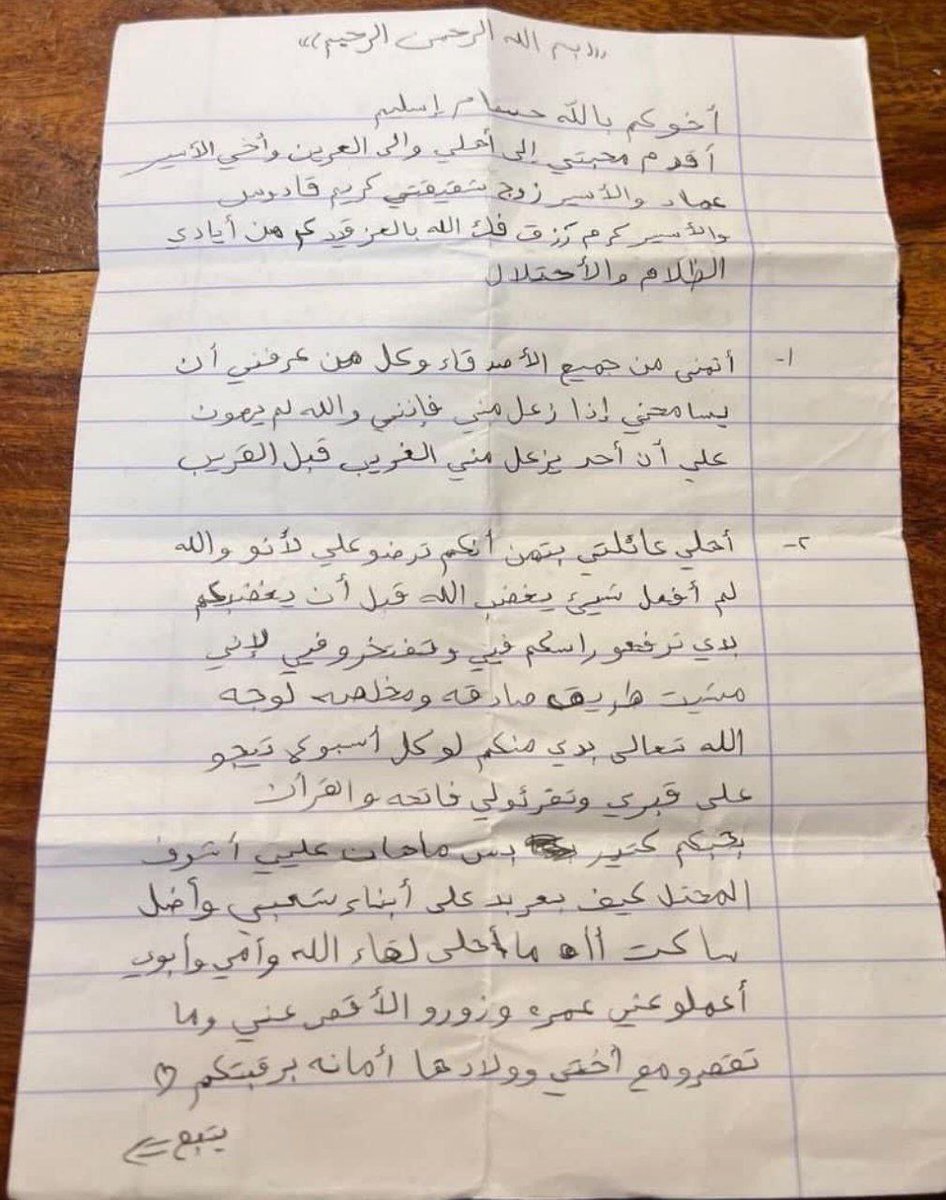 (((بسم الله الرحمن الرحيم)))
أخوكم بالله حسام إسليم
أقدم محبتي إلى أهلي والى العرين وأخي الأسير
عماد والأسير زوج شقيقتي كريم قادوس
والأسير كرم رزق فك الله بالعز قيدكم من أيادي
الظلام والأحتلال
١- أتمنى من جميع الأصدقاء وكل من عرفني أن
يسامحني إذا زعل مني فإنني والله لم يهون
علي أن أحد يزعل مني الغريب قبل القريب
٢- أهلي عائلتي بتمن أنكم ترضو علي لأنو والله
لم أفعل شيئ يغضب الله قبل أن يغضبكم
بدي ترفعو راسكم فيي وتفتخرو فيي لإني
مشيت طريق صادقه ومخلصه لوجه
الله تعالى بدي منكم لو كل أسبوع تيجو
على قبري وتقرئولي فاتحه والقرآن
بحبكم كتير بس ماهان عليي أشوف
المحتل كيف بعربد على أبناء شعبي وأضل
ساكت أاه ما أحلى لقاء الله وأمي وأبوي
أعملو عني عمره وزورو الأقصى عني وما
تقصرو مع أختي وولادها أمانه برقبتكم ♡
يتبع